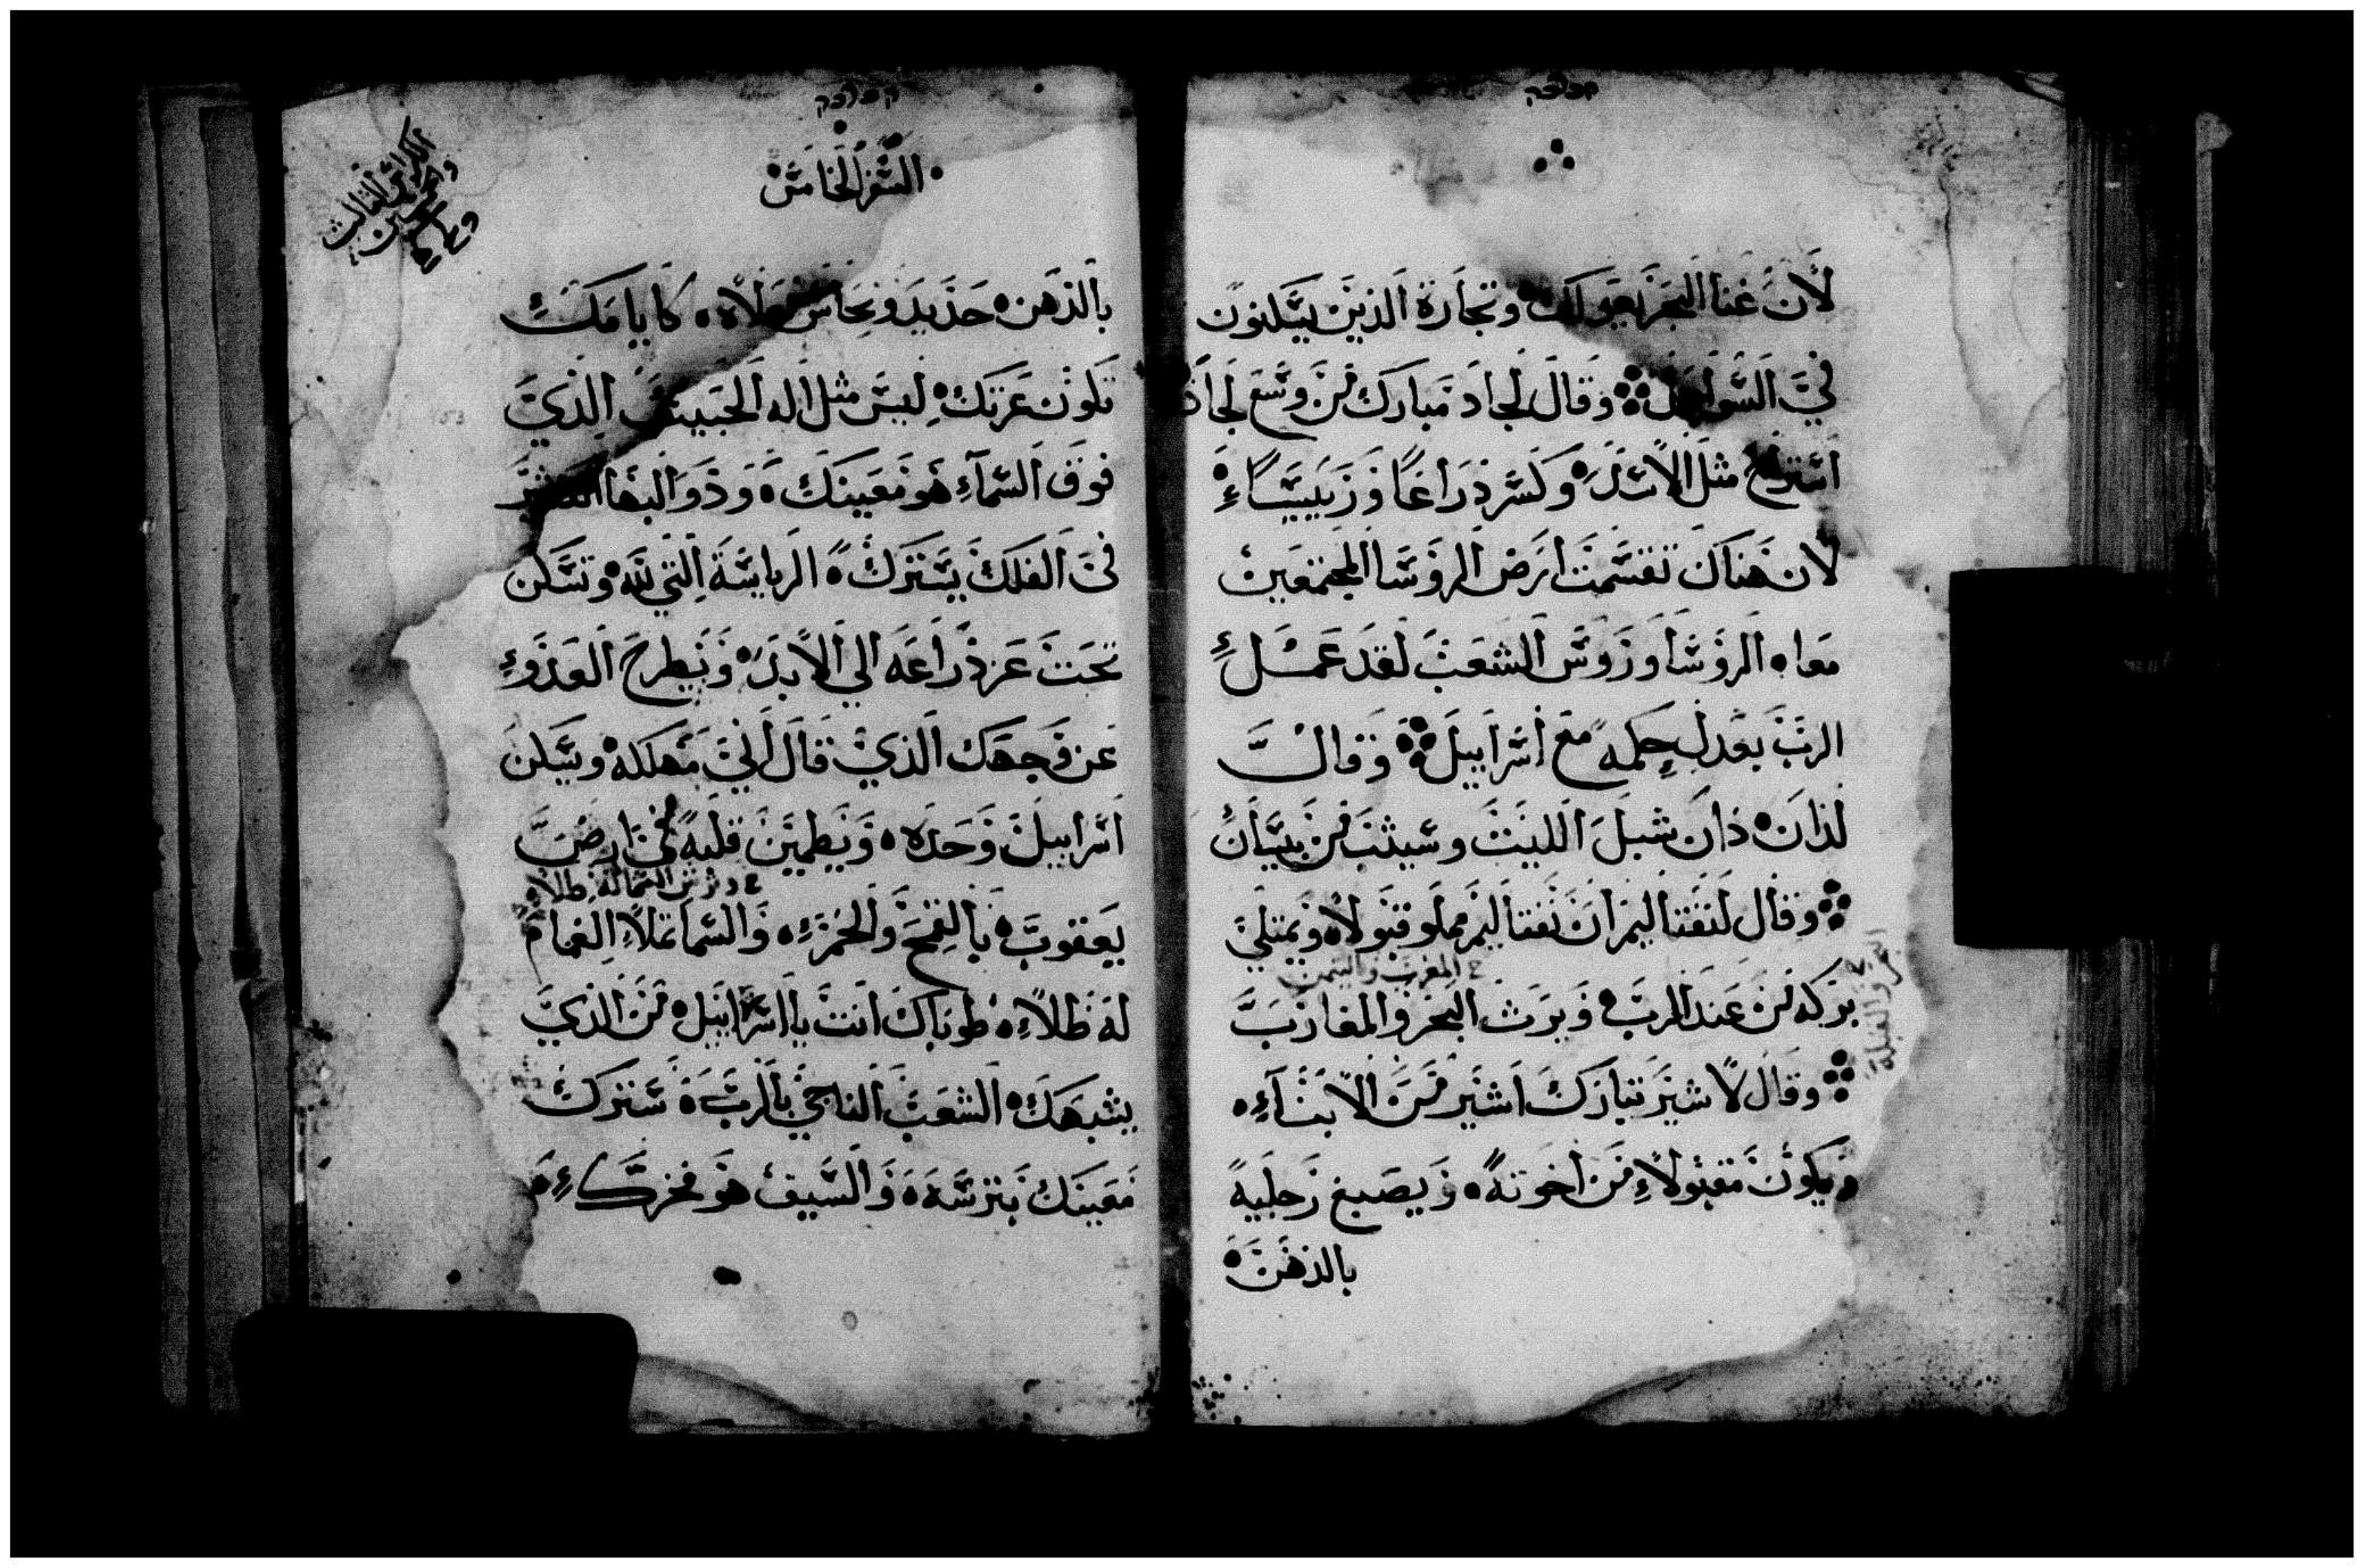 لأن غنا البحر يعولك وتجارة الذين يسكنون
في السواحل وقال لجاد مبارك من وسع لجاد
استراح مثل الاسد وكسر ذراعا وريسا
لان هناك تقسمت ارض الروسا المجتمعين
معاه الروسا وروس الشعب لقد عمل
الرب بعدل حكمه مع اسراييل وقال
لدان دان شبل الليث وسيثب من بيسان
وقال لنفتاليم ان نفتاليم مملو قبولا ويمتلي
بركه من عند الرب ويرث البحر والمغارب
المغرب واليمن
وقال لاشير تبارك اشير من الابناء
ويكون مقبولا من اخوته ويصبغ رجليه
بالدهن
السفر الخامس
الكراس الثالث
بالدهن حديد ونحاس نعلاه كايامك
تكون عزتك ليس مثل اله الحبيب الذي
فوق السماء هو معينك وذو البها
في الفلك يسترك الرياسة التي لله وتسكن
تحت عز ذراعه الي الابد ويطرح العدو
عن وجهك الذي قال اني مهلكه ويسكن
اسراييل وحده ويطمين قلبه في ارض
يعقوب بالقمح والخمر والسما تملا الغمام
له ظلا طوباك انت يا اسراييل من الذي
يشبهك الشعب الناجي بالرب سترك
معينك بترسه والسيف هو فخرك